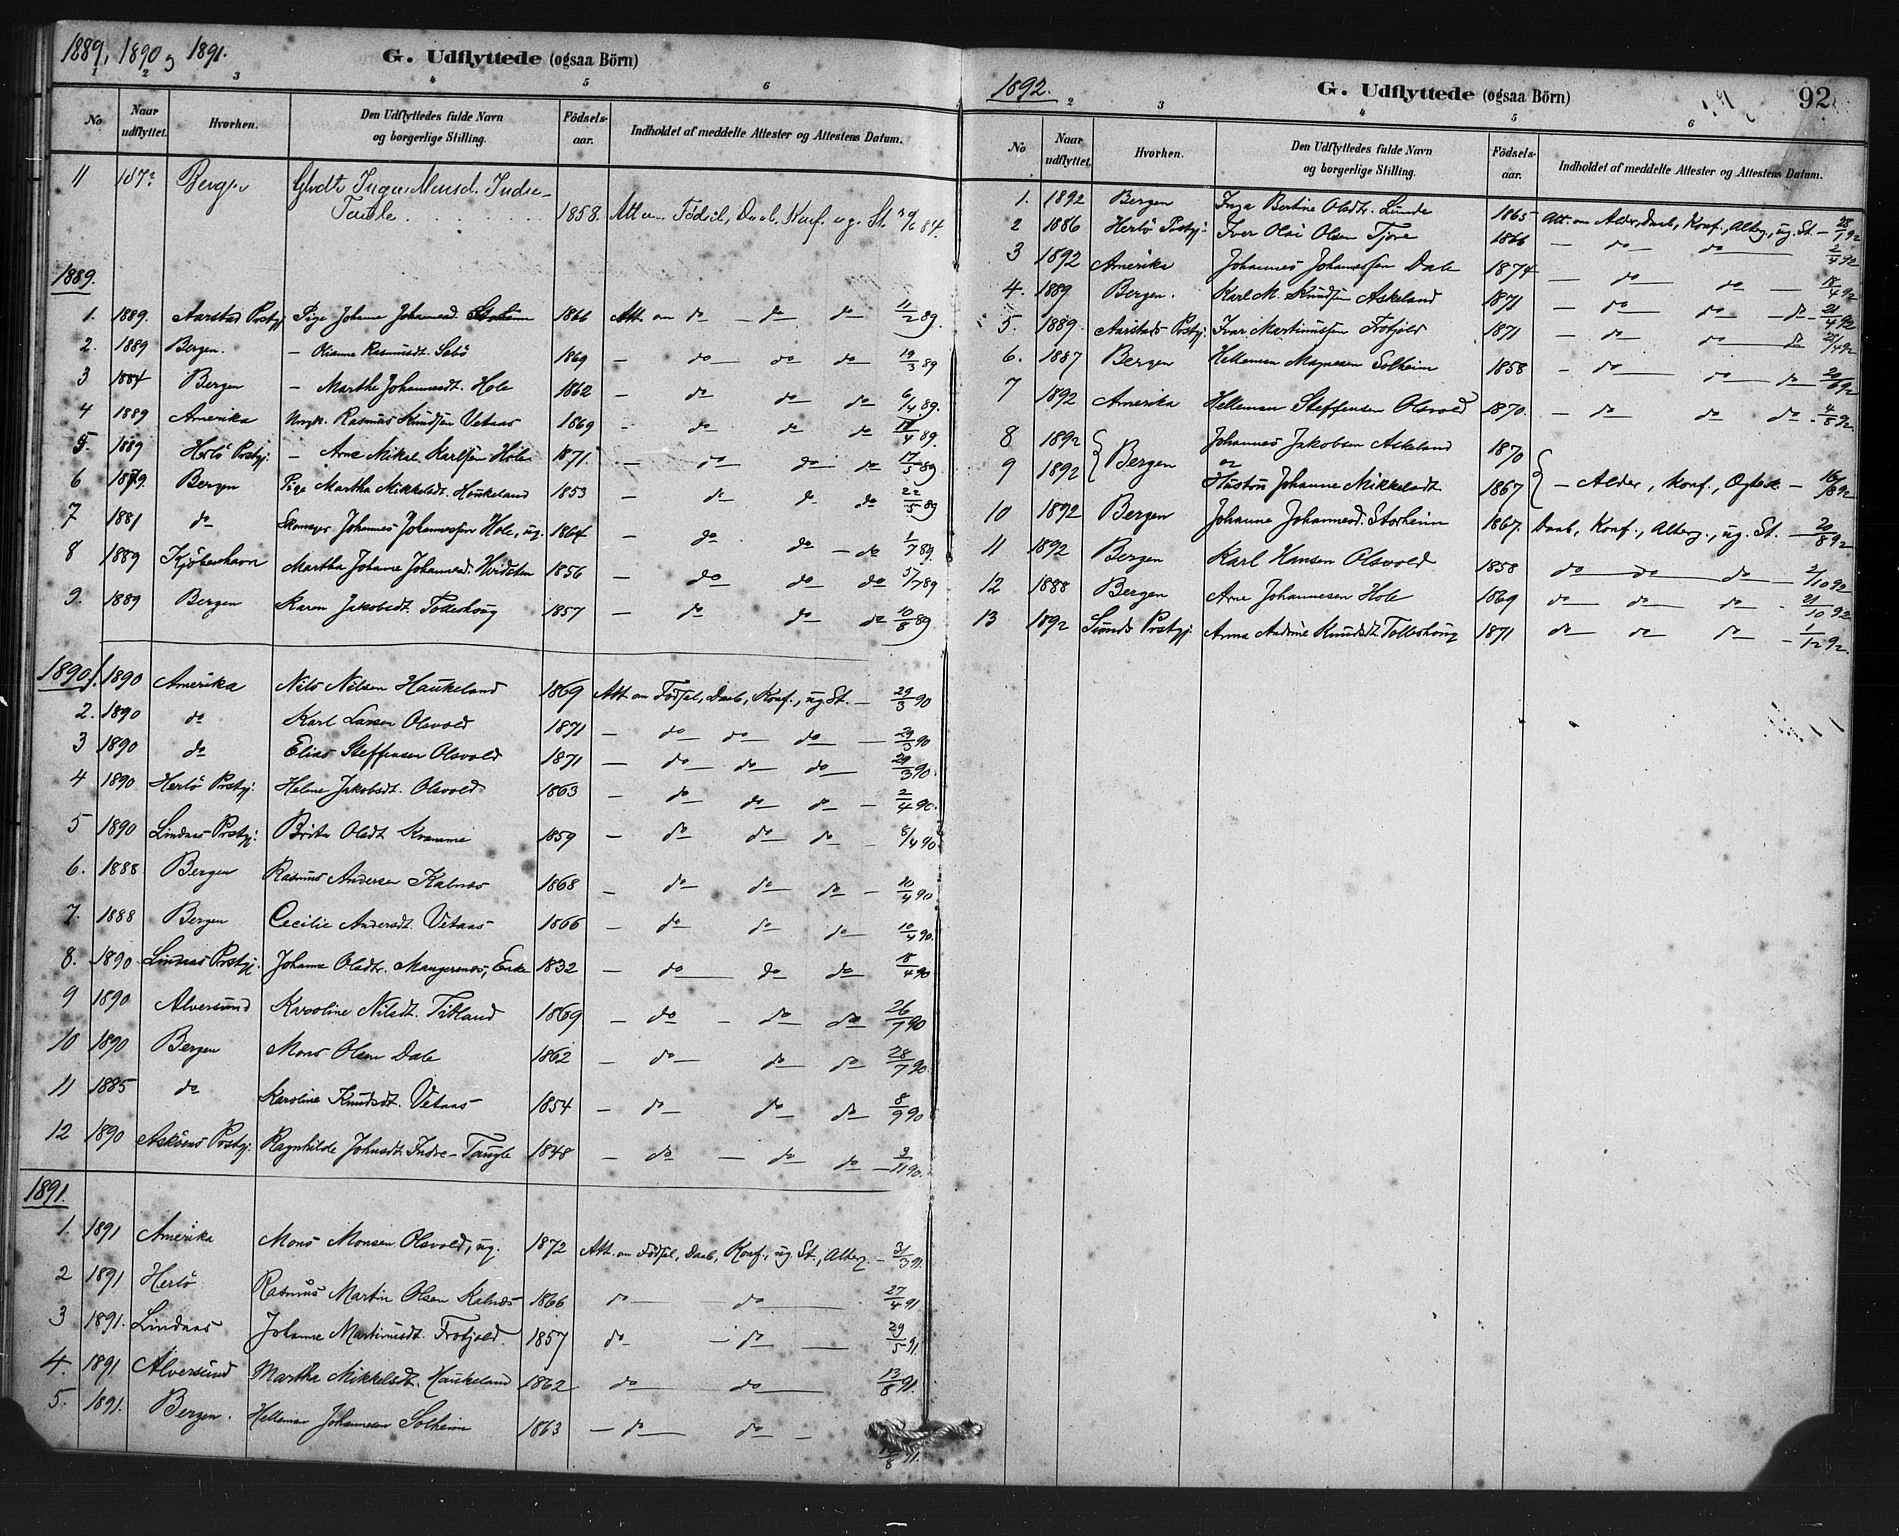 1889, 1890 og 1891.
G. Udflyttede (ogsaa Börn)
1 2 3 4 5 6
No | Naar udflyttet. | Hvorhen. | Den Udflyttedes fulde Navn og borgerlige Stilling. | Födsels-aar. | Indholdet af meddelte Attester og Attestens Datum.
11 Bergen Inger Monsd. Indre-
Taule 1858. Att om Födsel, Daab, Konf. ug. St. 84.
1889.
1. 1889. Aarstad Prstgj. Pige Johanne Johannesd. Storheim 1866 Att om do — do do 11/2 89.
2. 1889 Bergen. — Rasmusdt. Sebö 1869 — do do do 19/3 89
3 1884 Bergen — Marthe Johannesdt. Hole 1862 — do do do 6/4 89.
4 1889 Amerika Ungk. Rasmus Knudsen Vetaas 1869 — do do do 18/4 89.
5. 1889 Herlö Prstgj: — Arne Mikal Karlsen Hole 1871 — do do do 17/5 89
6 1879. Bergen Pige Martha Mikkelsdt. Haukeland 1853 — do do do 22/5 89
7 1881 do Skomager Johannes Johannessen Hole, ug. 1864 — do do — do 1/7 89.
8 1889 Kjöbenhavn Martha Johanne Johannesd. Hvidsten 1856 — do do do 5/7 89
9. 1889 Bergen Karen Jakobsdt. Toskehoug 1857 — do do do 10/8 89
1890. 1. 1890 Amerika Nils Nilsen Haukeland 1869 Att. om Födsel, Daab, Konf., ug. St. — 29/3 90
2. 1890 do Karl Larsen Olsvold 1871 — do do do — 29/3 90
3 1890 do Elias Steffensen Olsvold 1871 — do do do 29/3 90.
4 1890 Herlö Prstgj: Helene Jakobsdt. Olsvold 1863 — do do do — 2/4 90.
5 1890 Lindaas Prstgj: Brita Olsdt. Kvamme 1859 — do do do 8/4 90.
6. 1888 Bergen Rasmus Andersen Kalnæs 1868 — do do do — 10/4 90
7. 1888 Bergen Cecilie Andersdt. Vetaas 1866 — do do do 10/4 90.
8. 1890. Lindaas Prstgj. Johanne Olsdtr. Mangernæs, Enke 1832 — do do do 18/4 90
9 1890 Alversund Karoline Nilsdt. Titland 1869 — do — do do 26/7 90
10 1890 Bergen Mons Olsen Dale 1862 — do do do 28/7 90.
11 1885 do Karoline Knudsdt. Vetaas 1854 — do do do 8/9 90
12 1890 Asköens Prstgj. Ragnhilde Johnsdt. Indre-Taugle 1848 — do — do do 3/11 90.
1891.
1. 1891 Amerika Mons Monsen Olsvold, ug. 1872 Att. om Födsel, Daab, Konf., ug. St., Alterg. — 31/3 91.
2 1891 Herlö Rasmus Martin Olsen Kalnæs 1866 do — do — 27/4 91
3 1891. Lindaas Johanne Martinusdt. Frotjold 1857 do — do — 29/5 91.
4. 1891. Alversund Martha Mikkelsdt. Haukeland 1862 do do 13/8 91.
5. 1891. Bergen. Helleman Johannesen Solheim 1863 — do do — /8 91.
1892.
G. Udflyttede (ogsaa Börn)
92
2 3 4 5 6
No | Naar udflyttet. | Hvorhen. | Den Udflyttedes fulde Navn og borgerlige Stilling. | Födsels-aar. | Indholdet af meddelte Attester og Attestens Datum.
1. 1892 Bergen Inga Bertine Olsdtr. Lunde 1865 Att. om Alder, Daab, Konf., Alterg., ug. St. — 28/1 92
2 1886 Herlö Prstgj: Iver Olai Olsen Tjore 1866 — do do — 2/4 92
3 1892 Amerika Johannes Johannessen Dale 1874 — do do — 18/4 92
4. 1889 Bergen. Karl M. Knudsen Askeland 1871 — do do — do — 21/4 92
5. 1889. Aarstads Prstgj: Ivar Martinussen Frotjold 1871 — do do do 21/4 92
6. 1887 Bergen Helleman Magnesen Solheim 1858 — do do do 21/6 92
7 1892 Amerika Helleman Steffensen Olsvold 1870. — do do do — 4/8 92.
8 1892 Bergen Johannes Jakobsen Askeland 1870
9 1892 og Hustru Johanne Mikkelsdt. 1867 — Alder, Konf., Ægtesk — 16/8 92
10 1892 Bergen Johanne Johannesd. Storheim 1867. Daab, Konf., Alterg., ug. St. — 20/8 92
11 1892 Bergen Karl Hansen Olsvold 1858 do do do — 2/10 92
12 1888 Bergen Arne Johannesen Hole 1869 do do do — 21/10 92
13 1892 Sunds Prstgj. Anna Andrine Knudsdt Tolleshoug 1871 do do do — 1/12 92.